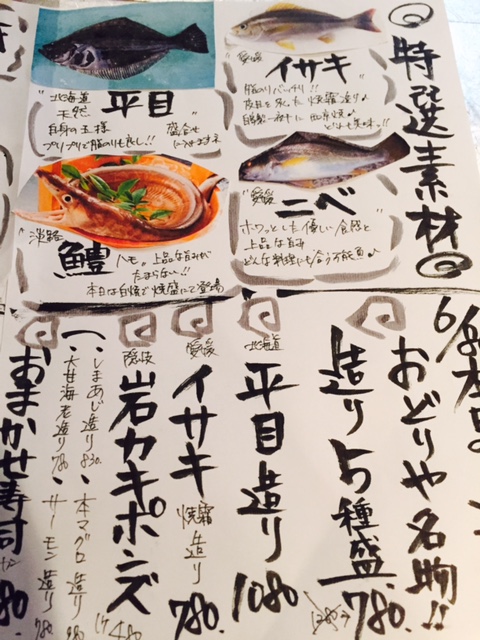 特選素材
"愛媛"
イサキ
脂のりバッチリ!!
皮目を炙した焼霜造り♪
どれも美味。!!
"愛媛"
ニベ
ホワっとした優しい食感と
上品な旨み
どんな料理にも合う万能魚♪
"北海道"
天然
平目
白身の王様
プリプリで脂のりも良し!!
"淡路"
鱧
ハモ。上品な旨みが
たまらない!!
本日は白焼で焼盛にて登場
6/8本日
おどりや名物!!
造り5種盛
1280→780.
北海道
平目造り
1080
愛媛
イサキ焼霜造り
780.
隠岐
岩カキポンズ
480
しまあじ造り 830.
本マグロ造り
大甘海老造り 780
サーモン造り
おまかせ寿司
80.